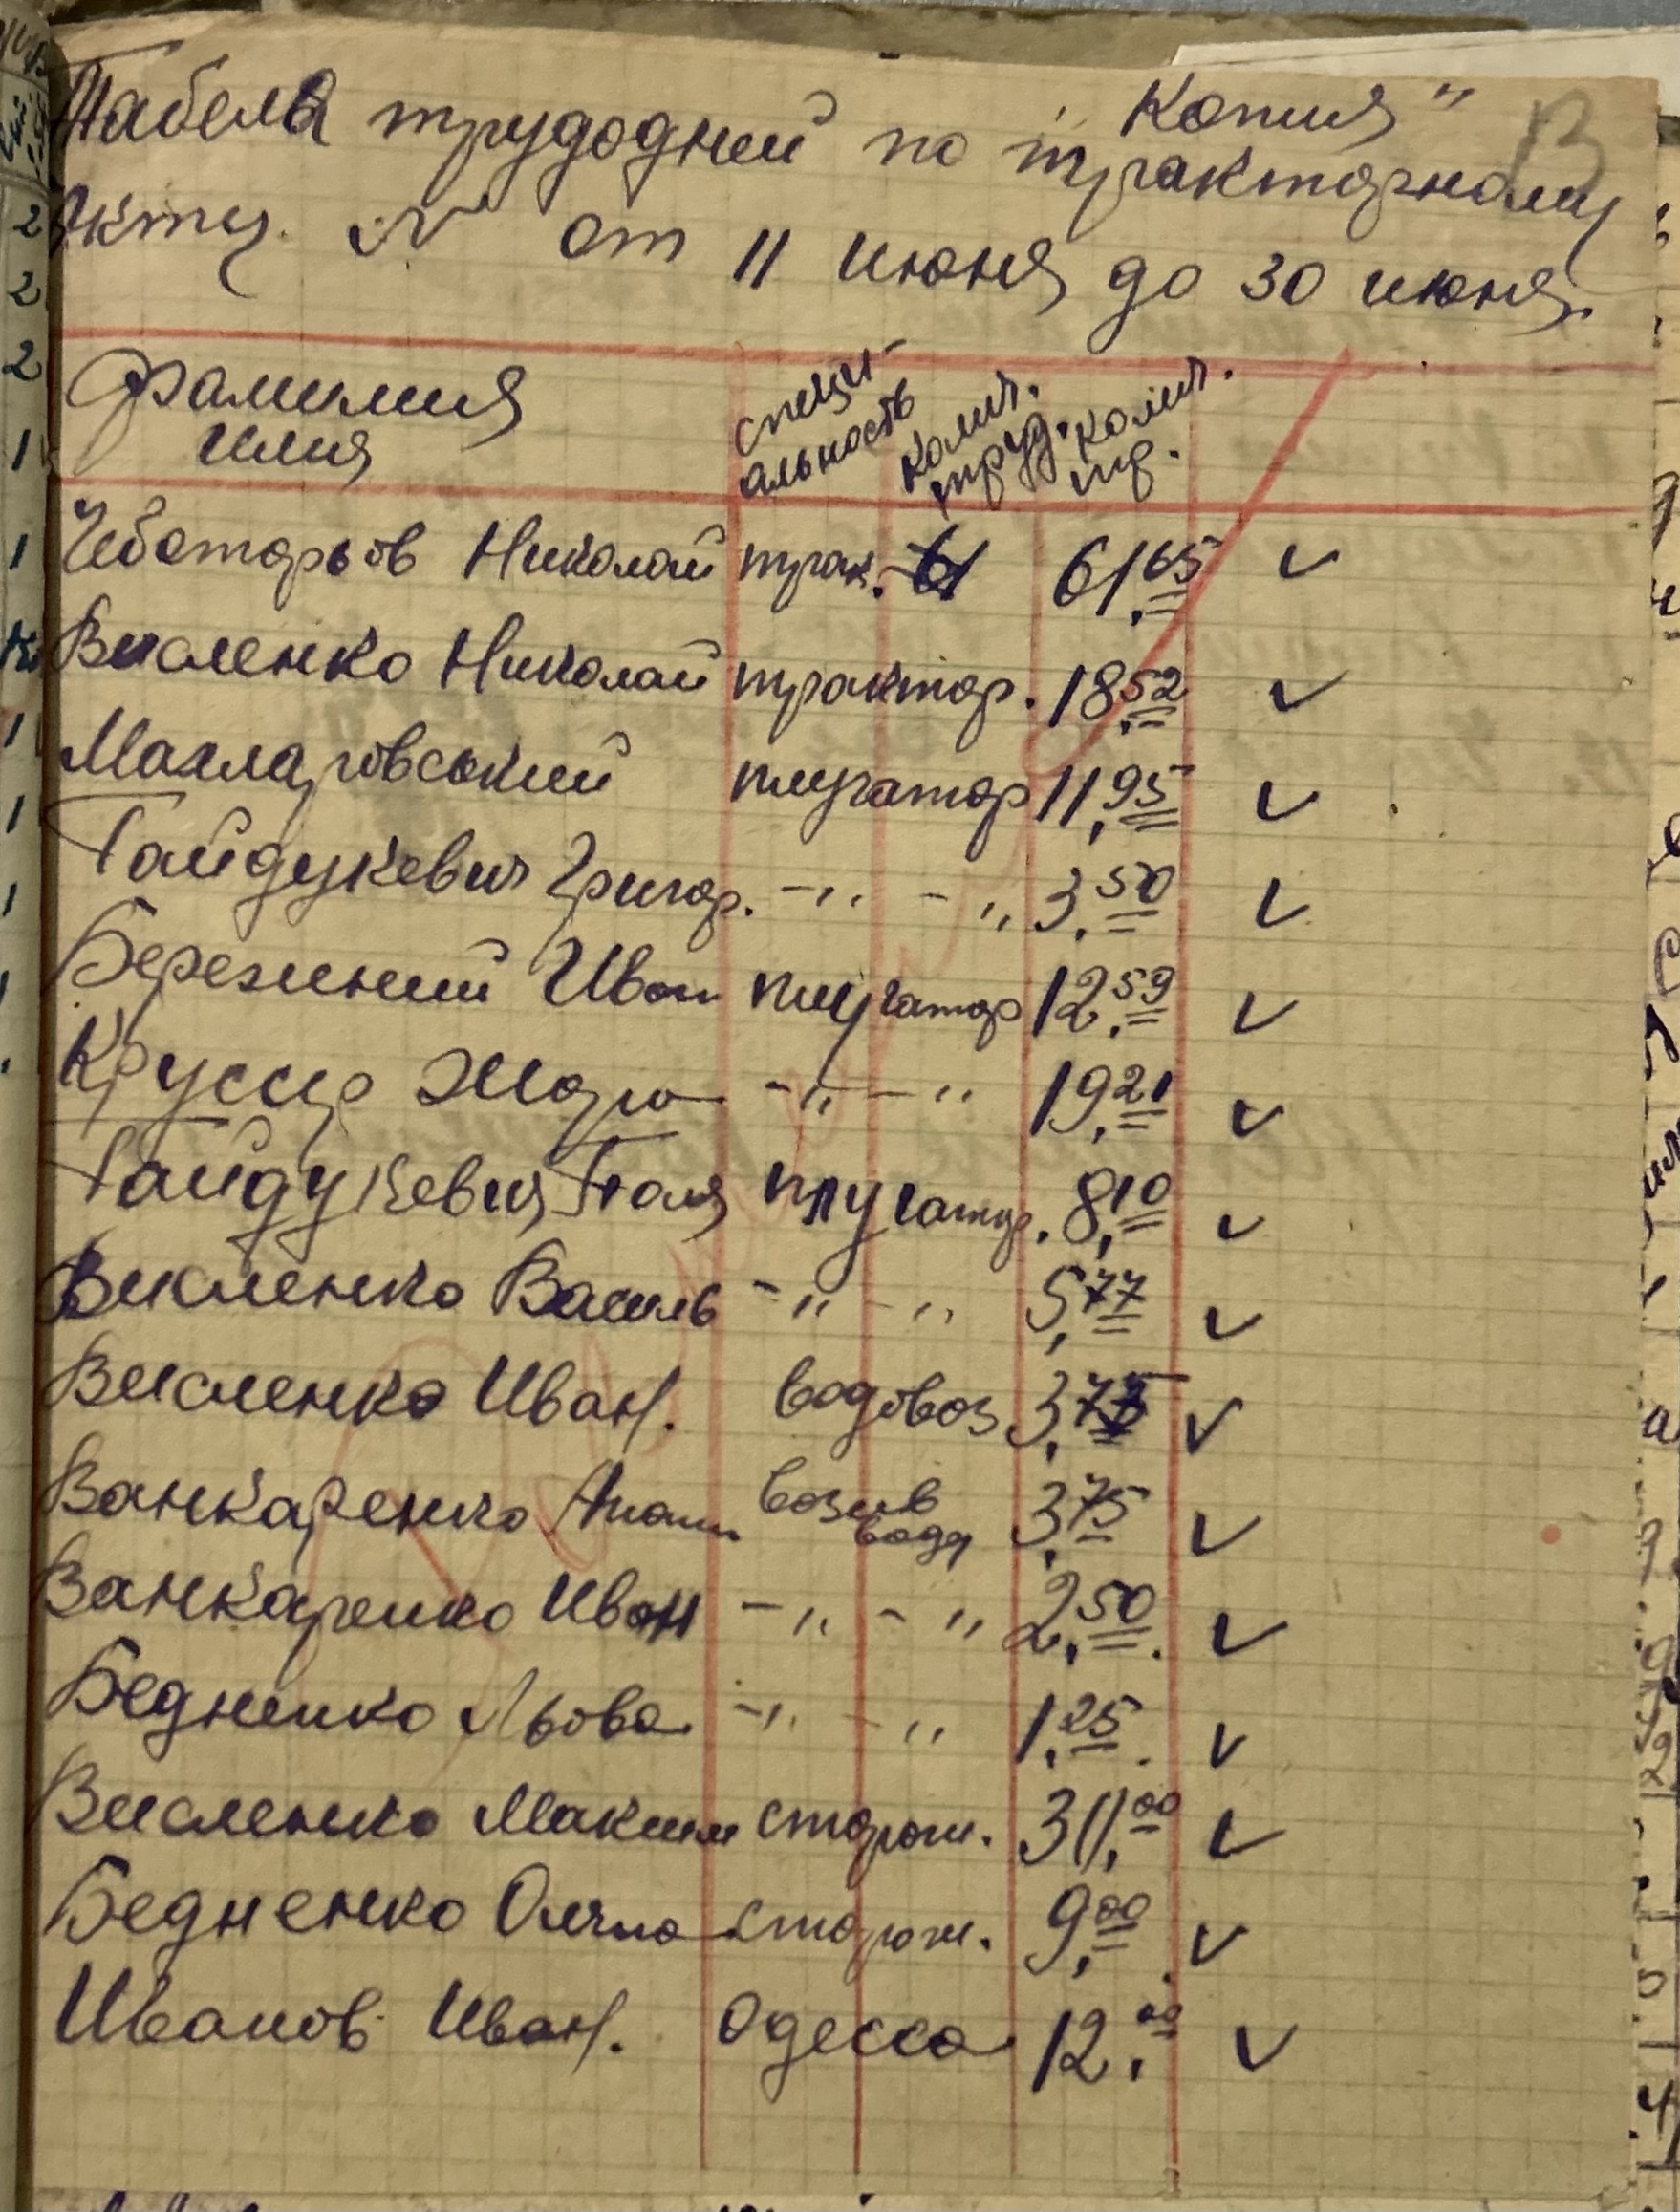 Копия"
Табеля трудодней по тракторному
Акту. № от 11 июня до 30 июня.
Фамилия имия специальность колич. труд. колич. тр.
Чеботарьов Николай трак. 61 61,65
Висленко Николай трактор. 18,52
плугатор 11,95
Гайдукевич Григор. -"- " 3,50
Березиний Иван плугатор 12,59
Круссер -"- " 19,21
Гайдукевич Галя плугатор. 8,10
Висленко Василь -"- " 5,77
Висленко Иван. водовоз 3,75
Ванкаренко возив воду 3,75
Ванкаренко Иван -"- " 2,50.
Бедненко Льова -"- " 1,25.
Висленко Максим сторож. 311,00
Бедненко сторож. 9,00
Иванов Иван. Одесса 12,00